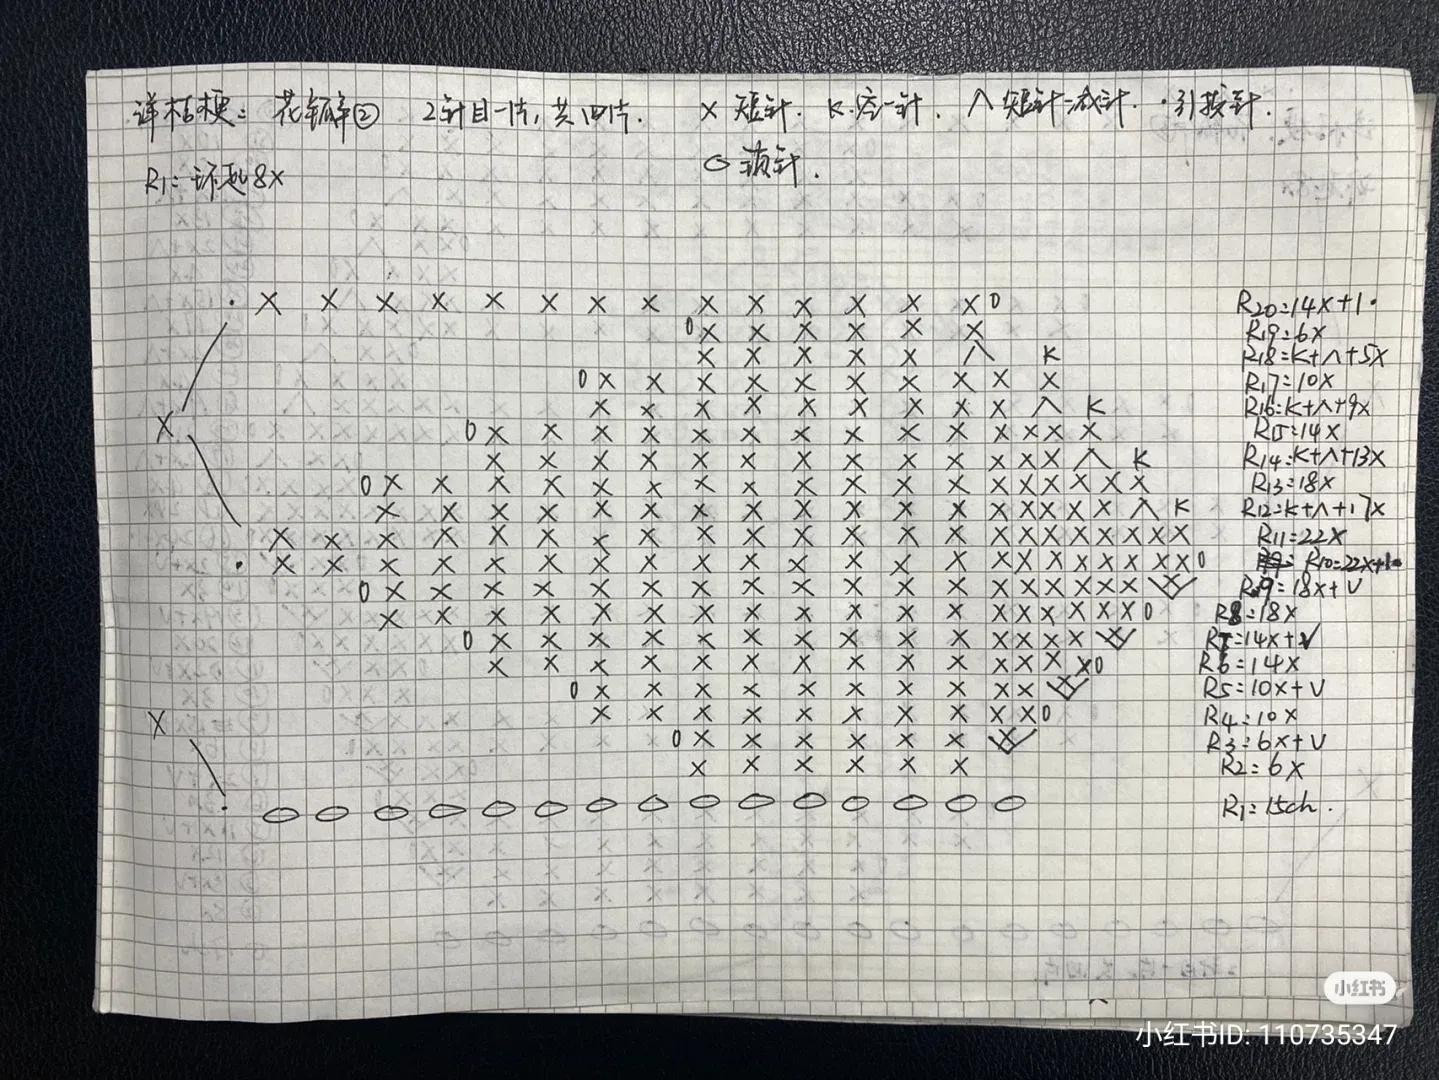 洋桔梗：花瓣② 2针目一片，共四片. X 短针. K.空一针. ∧ 短针减针. ·引拔针.
○ 锁针.
R1=环起8X
· X X X X X X X X X X X X X X 0 R20=14X+1·
0 X X X X X X R19=6X
X X X X X ∧ K R18=K+∧+5X
0 X X X X X X X X X X R17=10X
X X X X X X X X X ∧ K R16=K+∧+9X
X
0 X X X X X X X X X X X X X X R15=14X
X X X X X X X X X X X X X ∧ K R14=K+∧+13X
0 X X X X X X X X X X X X X X X X X X R13=18X
X X X X X X X X X X X X X X X X X ∧ K R12=K+∧+17X
X X X X X X X X X X X X X X X X X X X X X X R11=22X
· X X X X X X X X X X X X X X X X X X X X X X 0 R10=22X+1·
0 X X X X X X X X X X X X X X X X X X V R9=18X+V
X X X X X X X X X X X X X X X X X X 0 R8=18X
0 X X X X X X X X X X X X X X V R7=14X+V
X X X X X X X X X X X X X X 0 R6=14X
0 X X X X X X X X X X V R5=10X+V
X X X X X X X X X X 0 R4=10X
X
0 X X X X X X V R3=6X+V
X X X X X X R2=6X
· ○ ○ ○ ○ ○ ○ ○ ○ ○ ○ ○ ○ ○ ○ R1=15ch.
小红书
小红书ID: 110735347